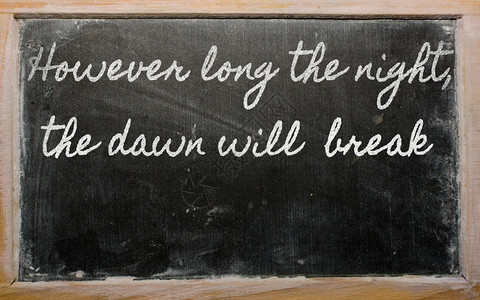 However long the night,
the dawn will break